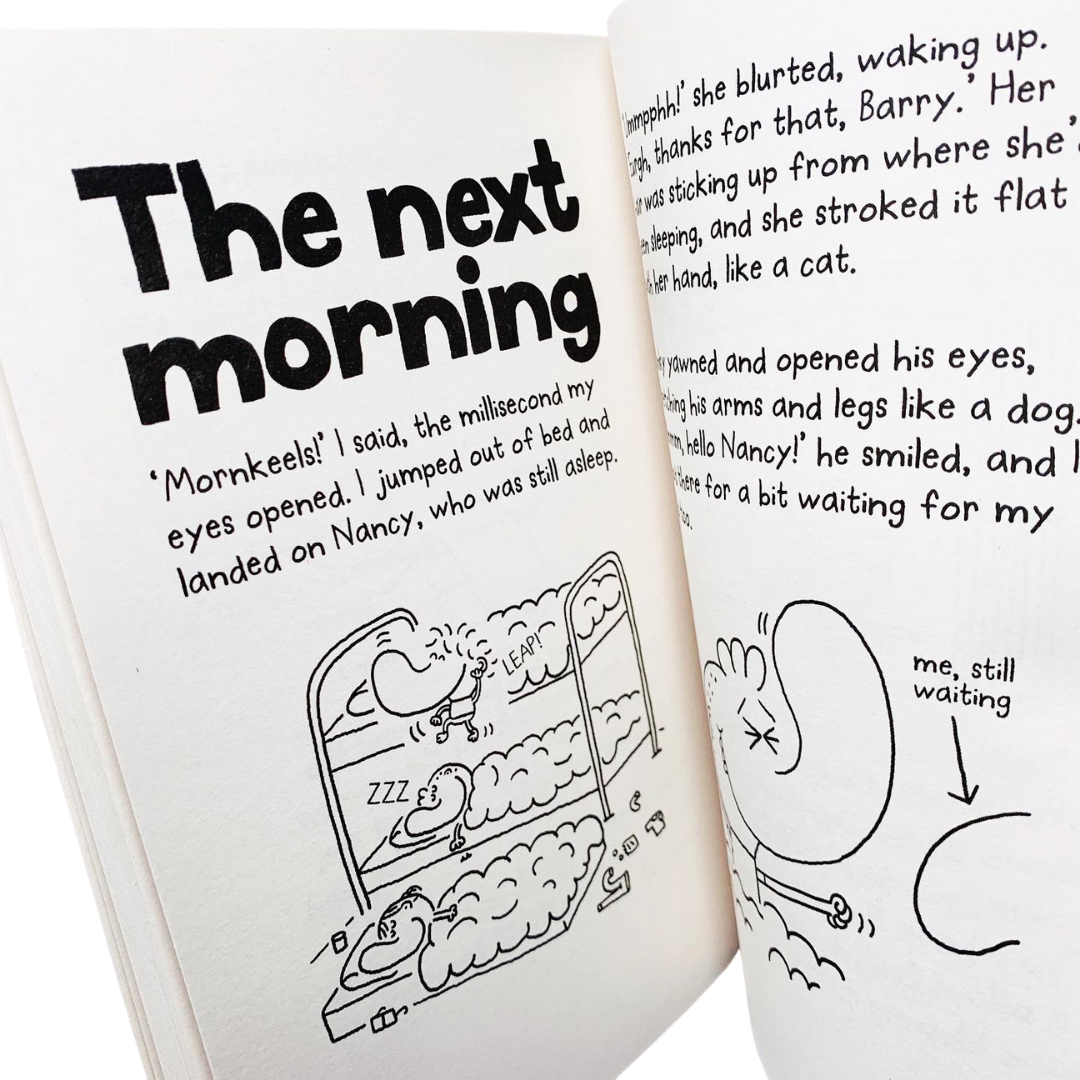 The next
morning
‘Mornkeels!’ I said, the millisecond my
eyes opened. I jumped out of bed and
landed on Nancy, who was still asleep.
LEAP!
ZZZ
she blurted, waking up.
thanks for that, Barry.’ Her
was sticking up from where she’
sleeping, and she stroked it flat
her hand, like a cat.
yawned and opened his eyes,
his arms and legs like a dog.
hello Nancy!’ he smiled, and I
there for a bit waiting for my
me, still
waiting